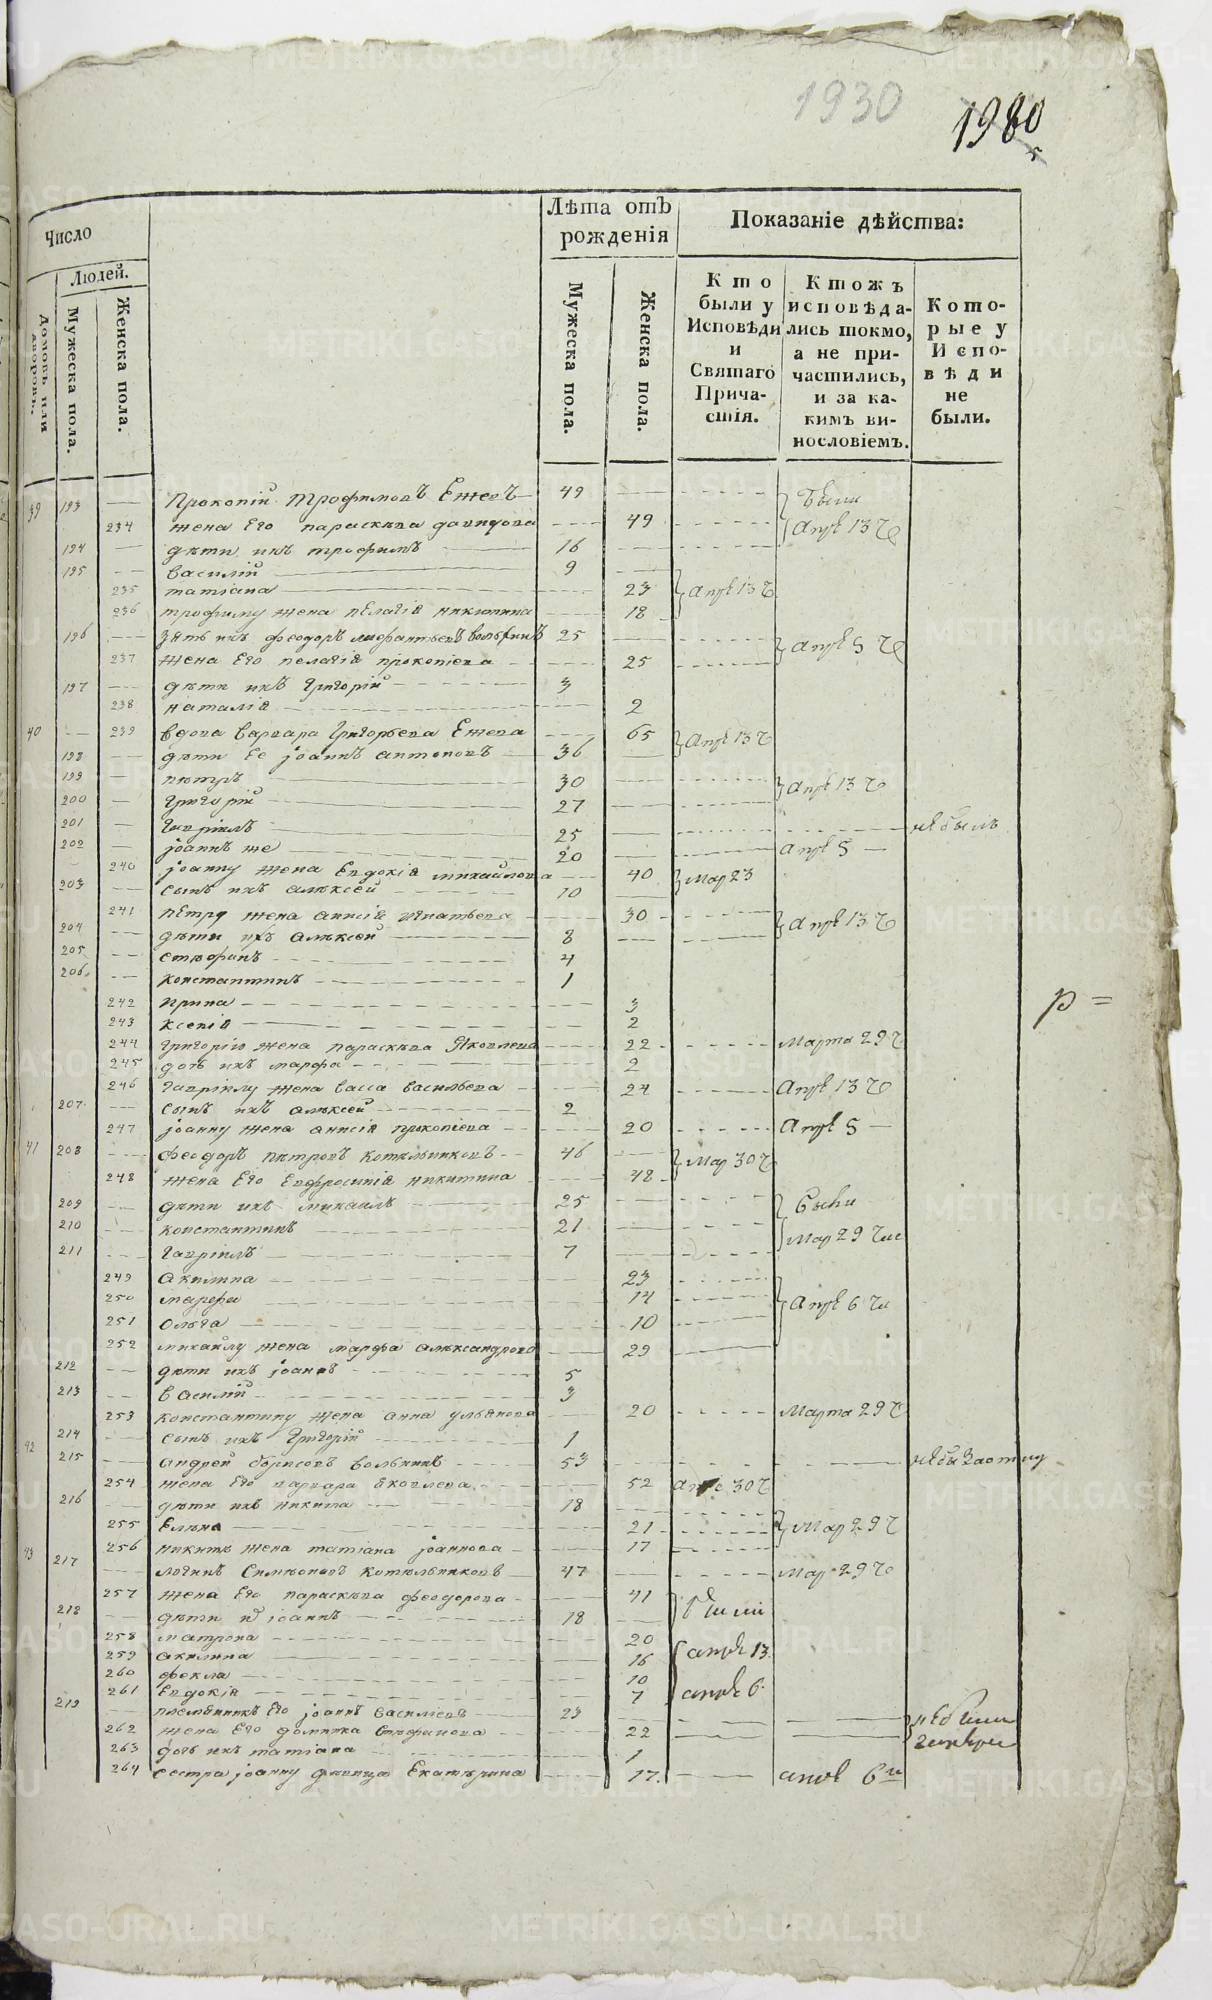 1930
1980
Число
Лѣта отъ рожденія
Показаніе дѣйства:
Людей.
Домовъ или дворовъ.
Мужеска пола.
Женска пола.
Мужеска пола.
Женска пола.
Кто были у Исповѣди и Святаго Причастія.
Ктожъ исповѣдались токмо, а не причастились, и за какимъ винословіемъ.
Которые у Исповѣди не были.
39 193 Прокопій Трофимовъ Ежевъ 49 были
234 жена Его параскѣва давидова 49 апрѣ 13 ч
194 дѣти ихъ трофимъ 16
195 василій 9
235 татіана 23 апрѣ 13 ч
236 трофиму жена пелагіа никитина 18
196 Зять ихъ феодоръ 25
237 жена Его пелагіа прокопіева 25 апрѣ 5 ч
197 дѣти ихъ Григорій 3
238 наталіа 2
40 239 вдова варвара Григорьева Ежева 65 апрѣ 13 ч
198 дѣти Ее іоаннъ антоновъ 36
199 пѣтръ 30 апрѣ 13 ч
200 Григорій 27
201 Гавріилъ 25 не былъ
202 іоаннъ же 20 апрѣ 5
240 іоанну жена Евдокіа михайлова 40 мар 23
203 сынъ ихъ алѣксей 10
241 пЕтру жена анисіа игнатьева 30 апрѣ 13 ч
204 дѣти ихъ алѣксей 8
205 стѣфанъ 4
206 константинъ 1
242 ирина 3
243 ксеніа 2
244 григорію жена параскѣва Яковлева 22 марта 29 ч
245 дочь ихъ марфа 2
246 гавріилу жена васса васильева 24 апрѣ 13 ч
207 сынъ ихъ алѣксей 2
247 іоанну жена анисіа прокопіева 20 апрѣ 5
41 208 феодоръ пѣтровъ котѣльниковъ 46 мар 30 ч
248 жена Его Евфросиніа никитина 48
209 дѣти ихъ михаилъ 25 были
210 константинъ 21 мар 29 чи
211 гавріилъ 7
249 акилина 23
250 марфа 14 апрѣ 6 чи
251 ольга 10
252 михаилу жена марфа алѣксандрова 29
212 дѣти ихъ іоаннъ 5
213 василій 3
253 константину жена анна ульянова 20 марта 29 ч
214 сынъ ихъ Григорій 1
42 215 андрей борисовъ вольхинъ 53
254 жена Его варвара яковлева 52 30 ч
216 дѣти ихъ никита 18
255 Елѣна 21 мар 29 ч
256 никитѣ жена татіана іоаннова 17
43 217 логинъ Симѣоновъ котѣльниковъ 47 мар 29 ч
257 жена Его параскѣва феодорова 41 были
218 дѣти их іоаннъ 18
258 матрона 20 апрѣ 13
259 акилина 16
260 фекла 10 апрѣ 6
261 Евдокіа 7
219 племянникъ Его іоаннъ васильевъ 23 не были
262 жена Его домника Стефанова 22
263 дочь ихъ татіана 1
264 сестра іоанну дѣвица Екатѣрина 17 апрѣ 6 чи
р =